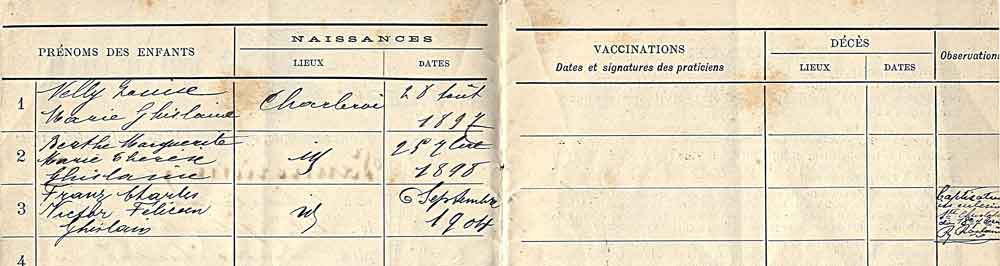 PRÉNOMS DES ENFANTS
NAISSANCES
LIEUX
DATES
VACCINATIONS
Dates et signatures des praticiens
DÉCÈS
LIEUX
DATES
Observations
1
Willy Louise
Marie Ghislaine
Charleroi
28 août
1897
2
Berthe Marguerite
Marie Thérèse
Ghislaine
id
25 7bre
1898
3
Franz Charles
Victor Félicien
Ghislain
id
6 Septembre
1904
4